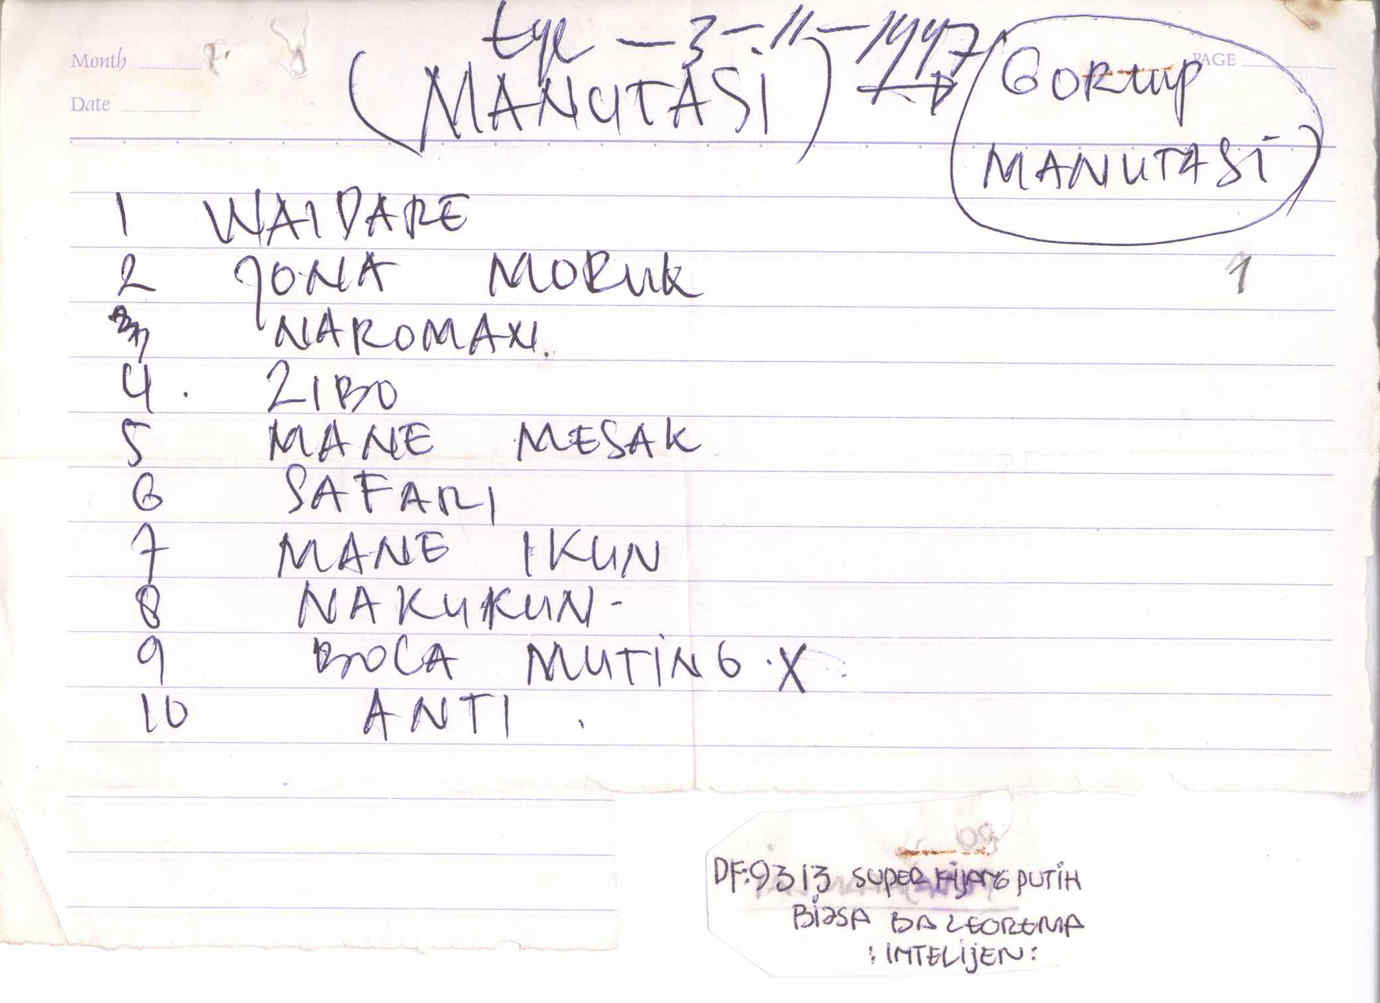 Tgl - 3 - 11 - 1997
Month
(MANUTASI) → GORUP
PAGE
Date
MANUTASI
1 WAIDARE
2 JONA MORUK
1
3 NAROMAN.
4. ZIBO
5 MANE MESAK
6 SAFARI
7 MANE IKUN
8 NAKUKUN-
9 BOCA MUTING.X
10 ANTI.
DF:9313 SUPER KIJANG PUTIH
BIASA BA LEOREMA
:INTELIJEN: